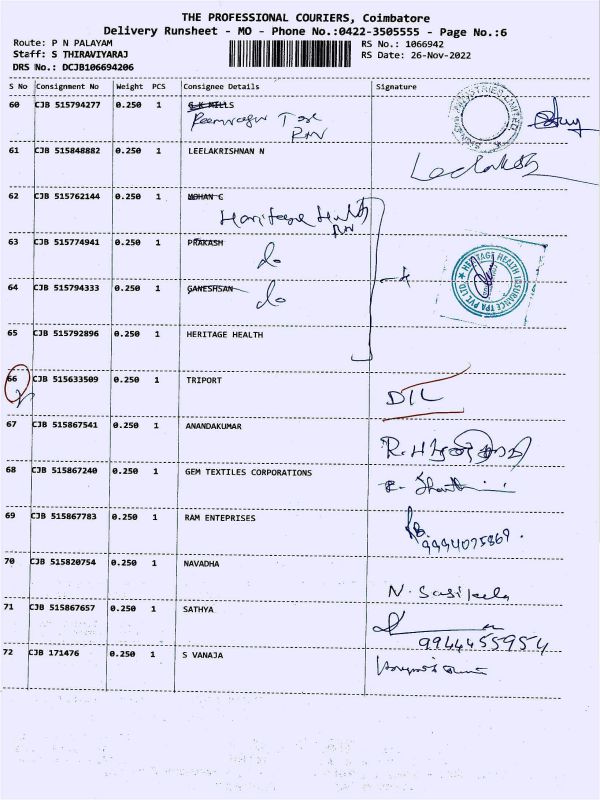 THE PROFESSIONAL COURIERS, Coimbatore
Delivery Runsheet - MO - Phone No.:0422-3505555 - Page No.:6
Route: P N PALAYAM
Staff: S THIRAVIYARAJ
DRS No.: DCJB106694206
RS No.: 1066942
RS Date: 26-Nov-2022
S No Consignment No Weight PCS Consignee Details Signature
60 CJB 515794277 0.250 1 G K MILLS
61 CJB 515848882 0.250 1 LEELAKRISHNAN N
62 CJB 515762144 0.250 1 MOHAN C
Heritage Health
63 CJB 515774941 0.250 1 PRAKASH
do
HERITAGE HEALTH INSURANCE TPA PVT LTD
64 CJB 515794333 0.250 1 GANESHSAN
do
65 CJB 515792896 0.250 1 HERITAGE HEALTH
66 CJB 515633509 0.250 1 TRIPORT
DIL
67 CJB 515867541 0.250 1 ANANDAKUMAR
68 CJB 515867240 0.250 1 GEM TEXTILES CORPORATIONS
69 CJB 515867783 0.250 1 RAM ENTEPRISES
70 CJB 515820754 0.250 1 NAVADHA
N. Sasikala
71 CJB 515867657 0.250 1 SATHYA
9944455954
72 CJB 171476 0.250 1 S VANAJA